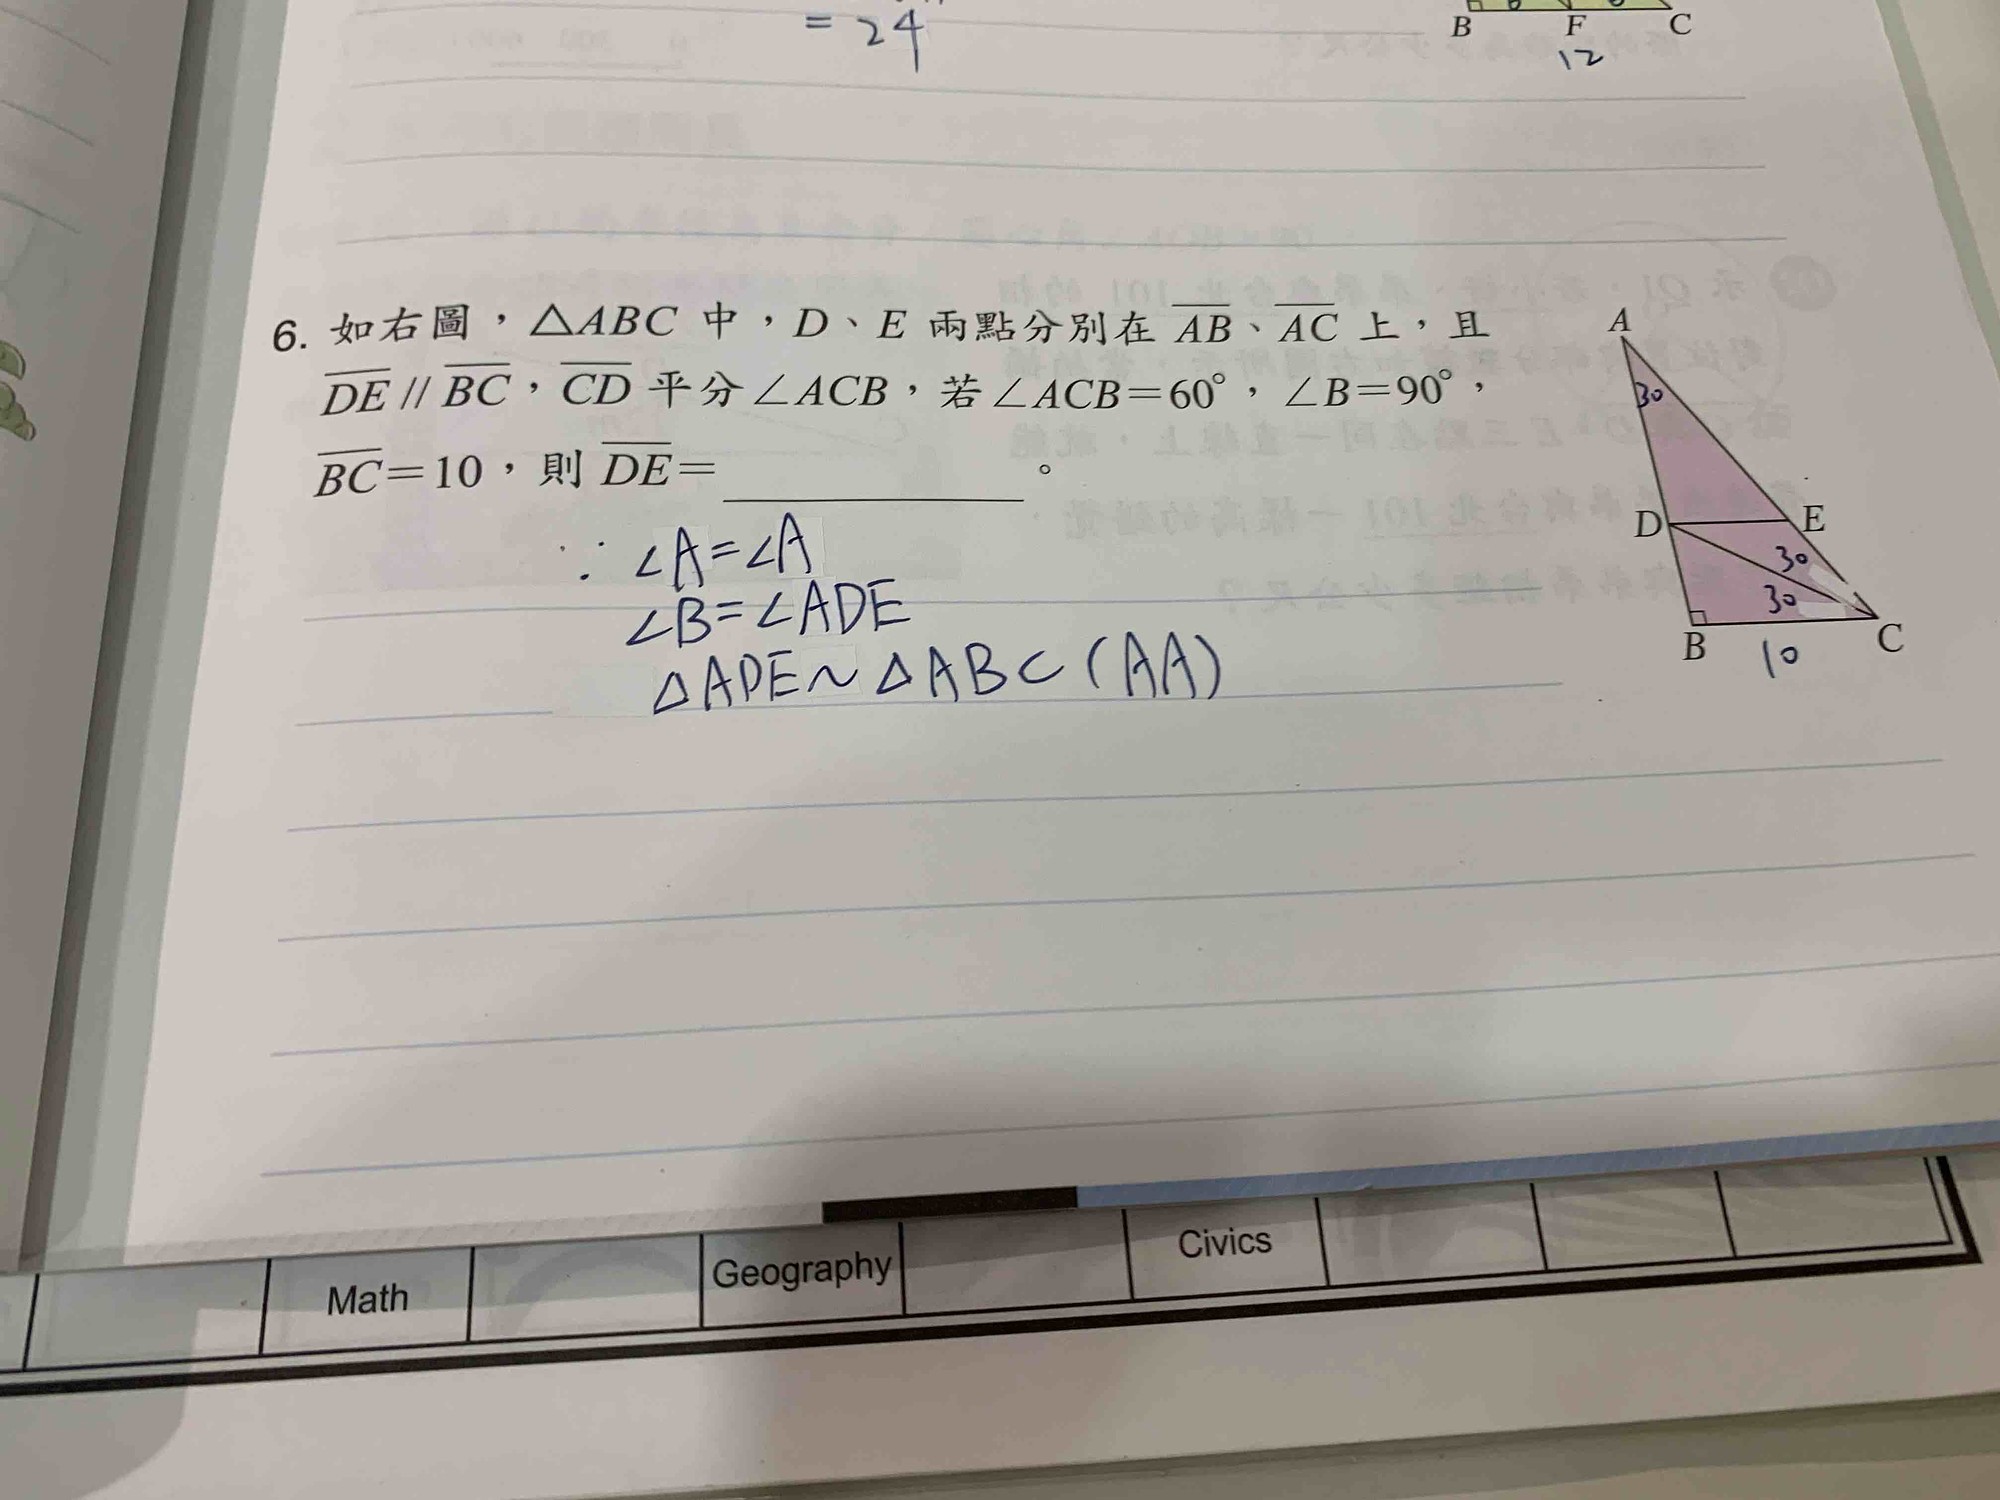 = 24
B F C
12
6. 如右圖，△ABC 中，D、E 兩點分別在 AB、AC 上，且
DE // BC，CD 平分∠ACB，若∠ACB=60°，∠B=90°，
BC=10，則 DE=＿＿＿＿。
∵ ∠A=∠A
∠B=∠ADE
△ADE~△ABC (AA)
A
30
D E
30
30
B 10 C
Math Geography Civics